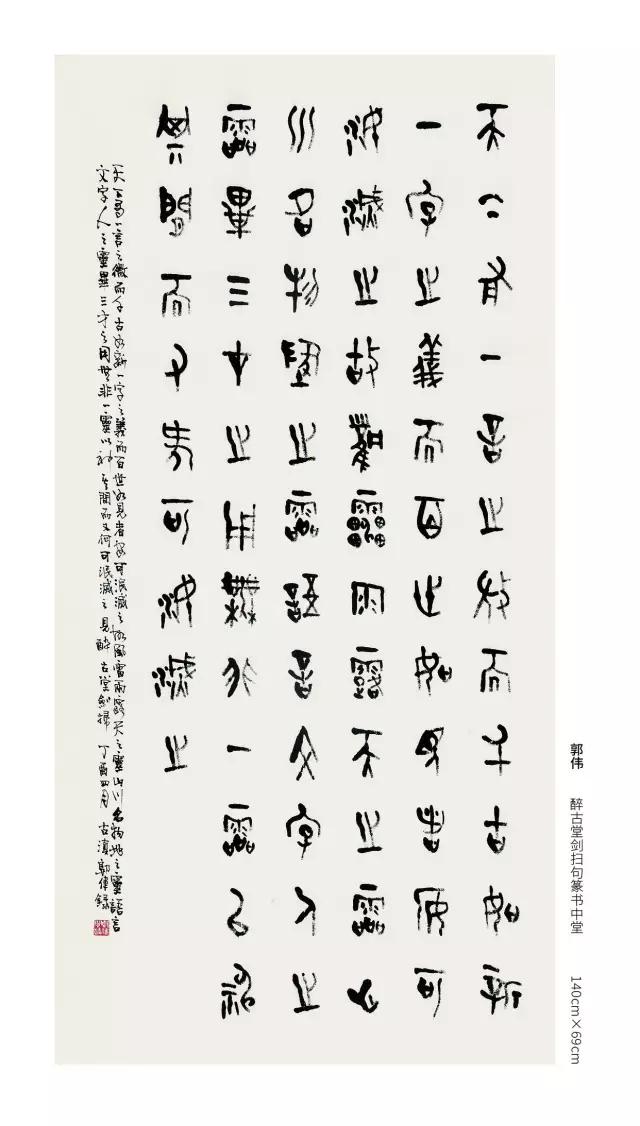 天下有一言之微而千古如新
一字之義而百世如見者安可
泯滅之故風雷雨露天之靈山
川名物地之靈語言文字人之
靈畢三才之用無非一靈以神
其間而又何可泯滅之
天下有一言之微而千古如新一字之義而百世如見者安可泯滅之故風雷雨露天之靈山川名物地之靈語言
文字人之靈畢三才之用無非一靈以神其間而又何可泯滅之 見醉古堂劍掃 丁酉四月 古滇郭偉錄
郭伟 醉古堂剑扫句篆书中堂 140cm×69cm